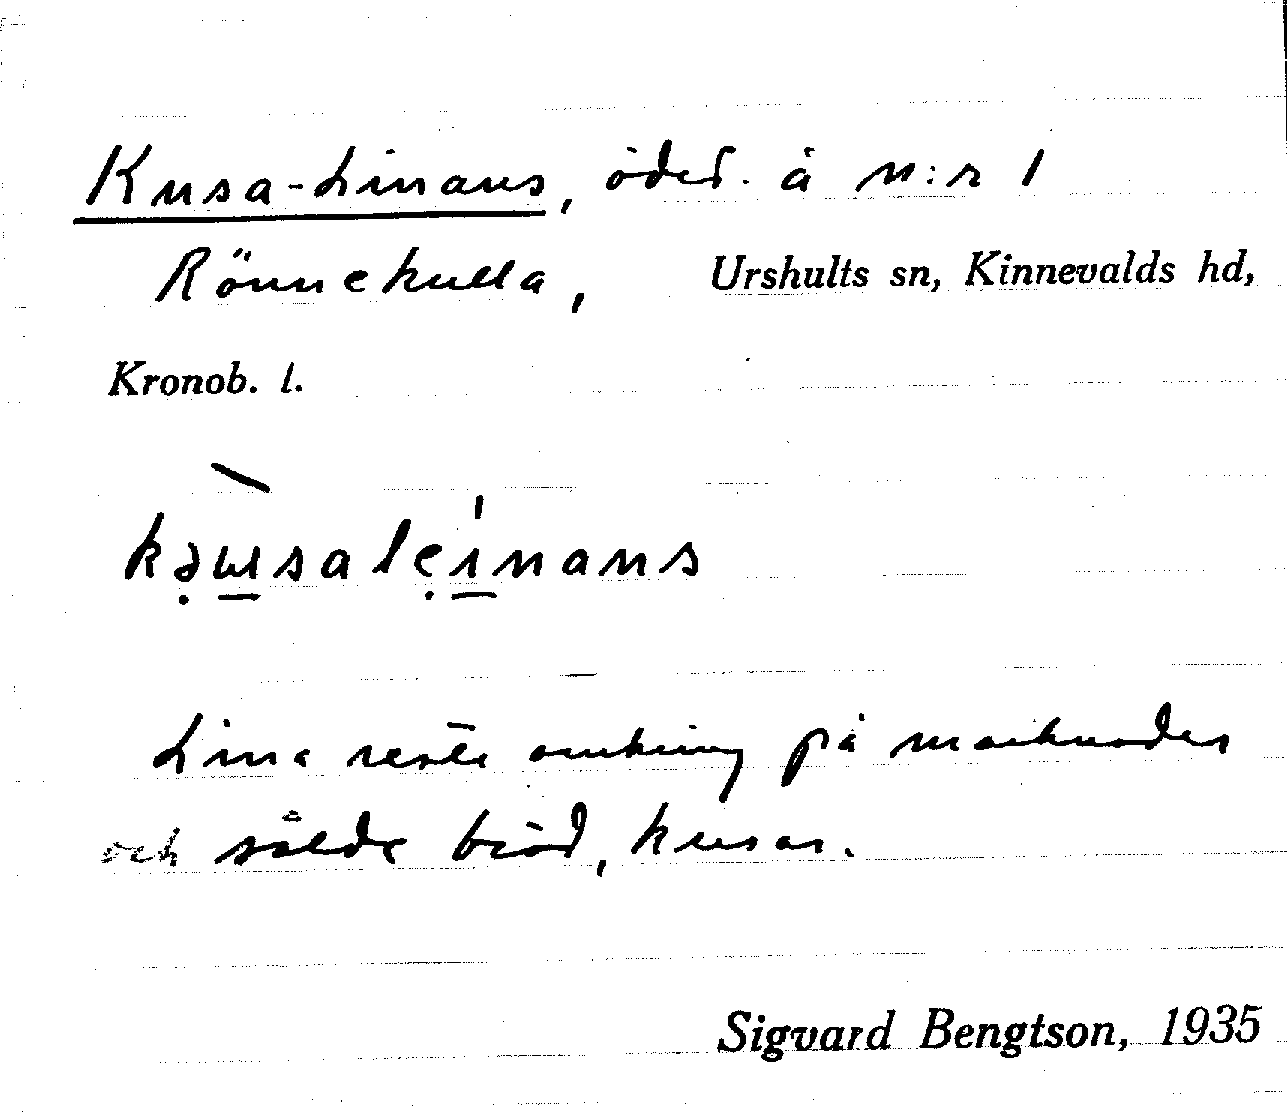 Kusa-Linans, öded. å n:r 1
Rönnekulla, Urshults sn, Kinnevalds hd,
Kronob. l.
kə̣ɯsalẹinans
Lina reste omkring på marknader
och sålde bröd, kusar.
Sigvard Bengtson, 1935